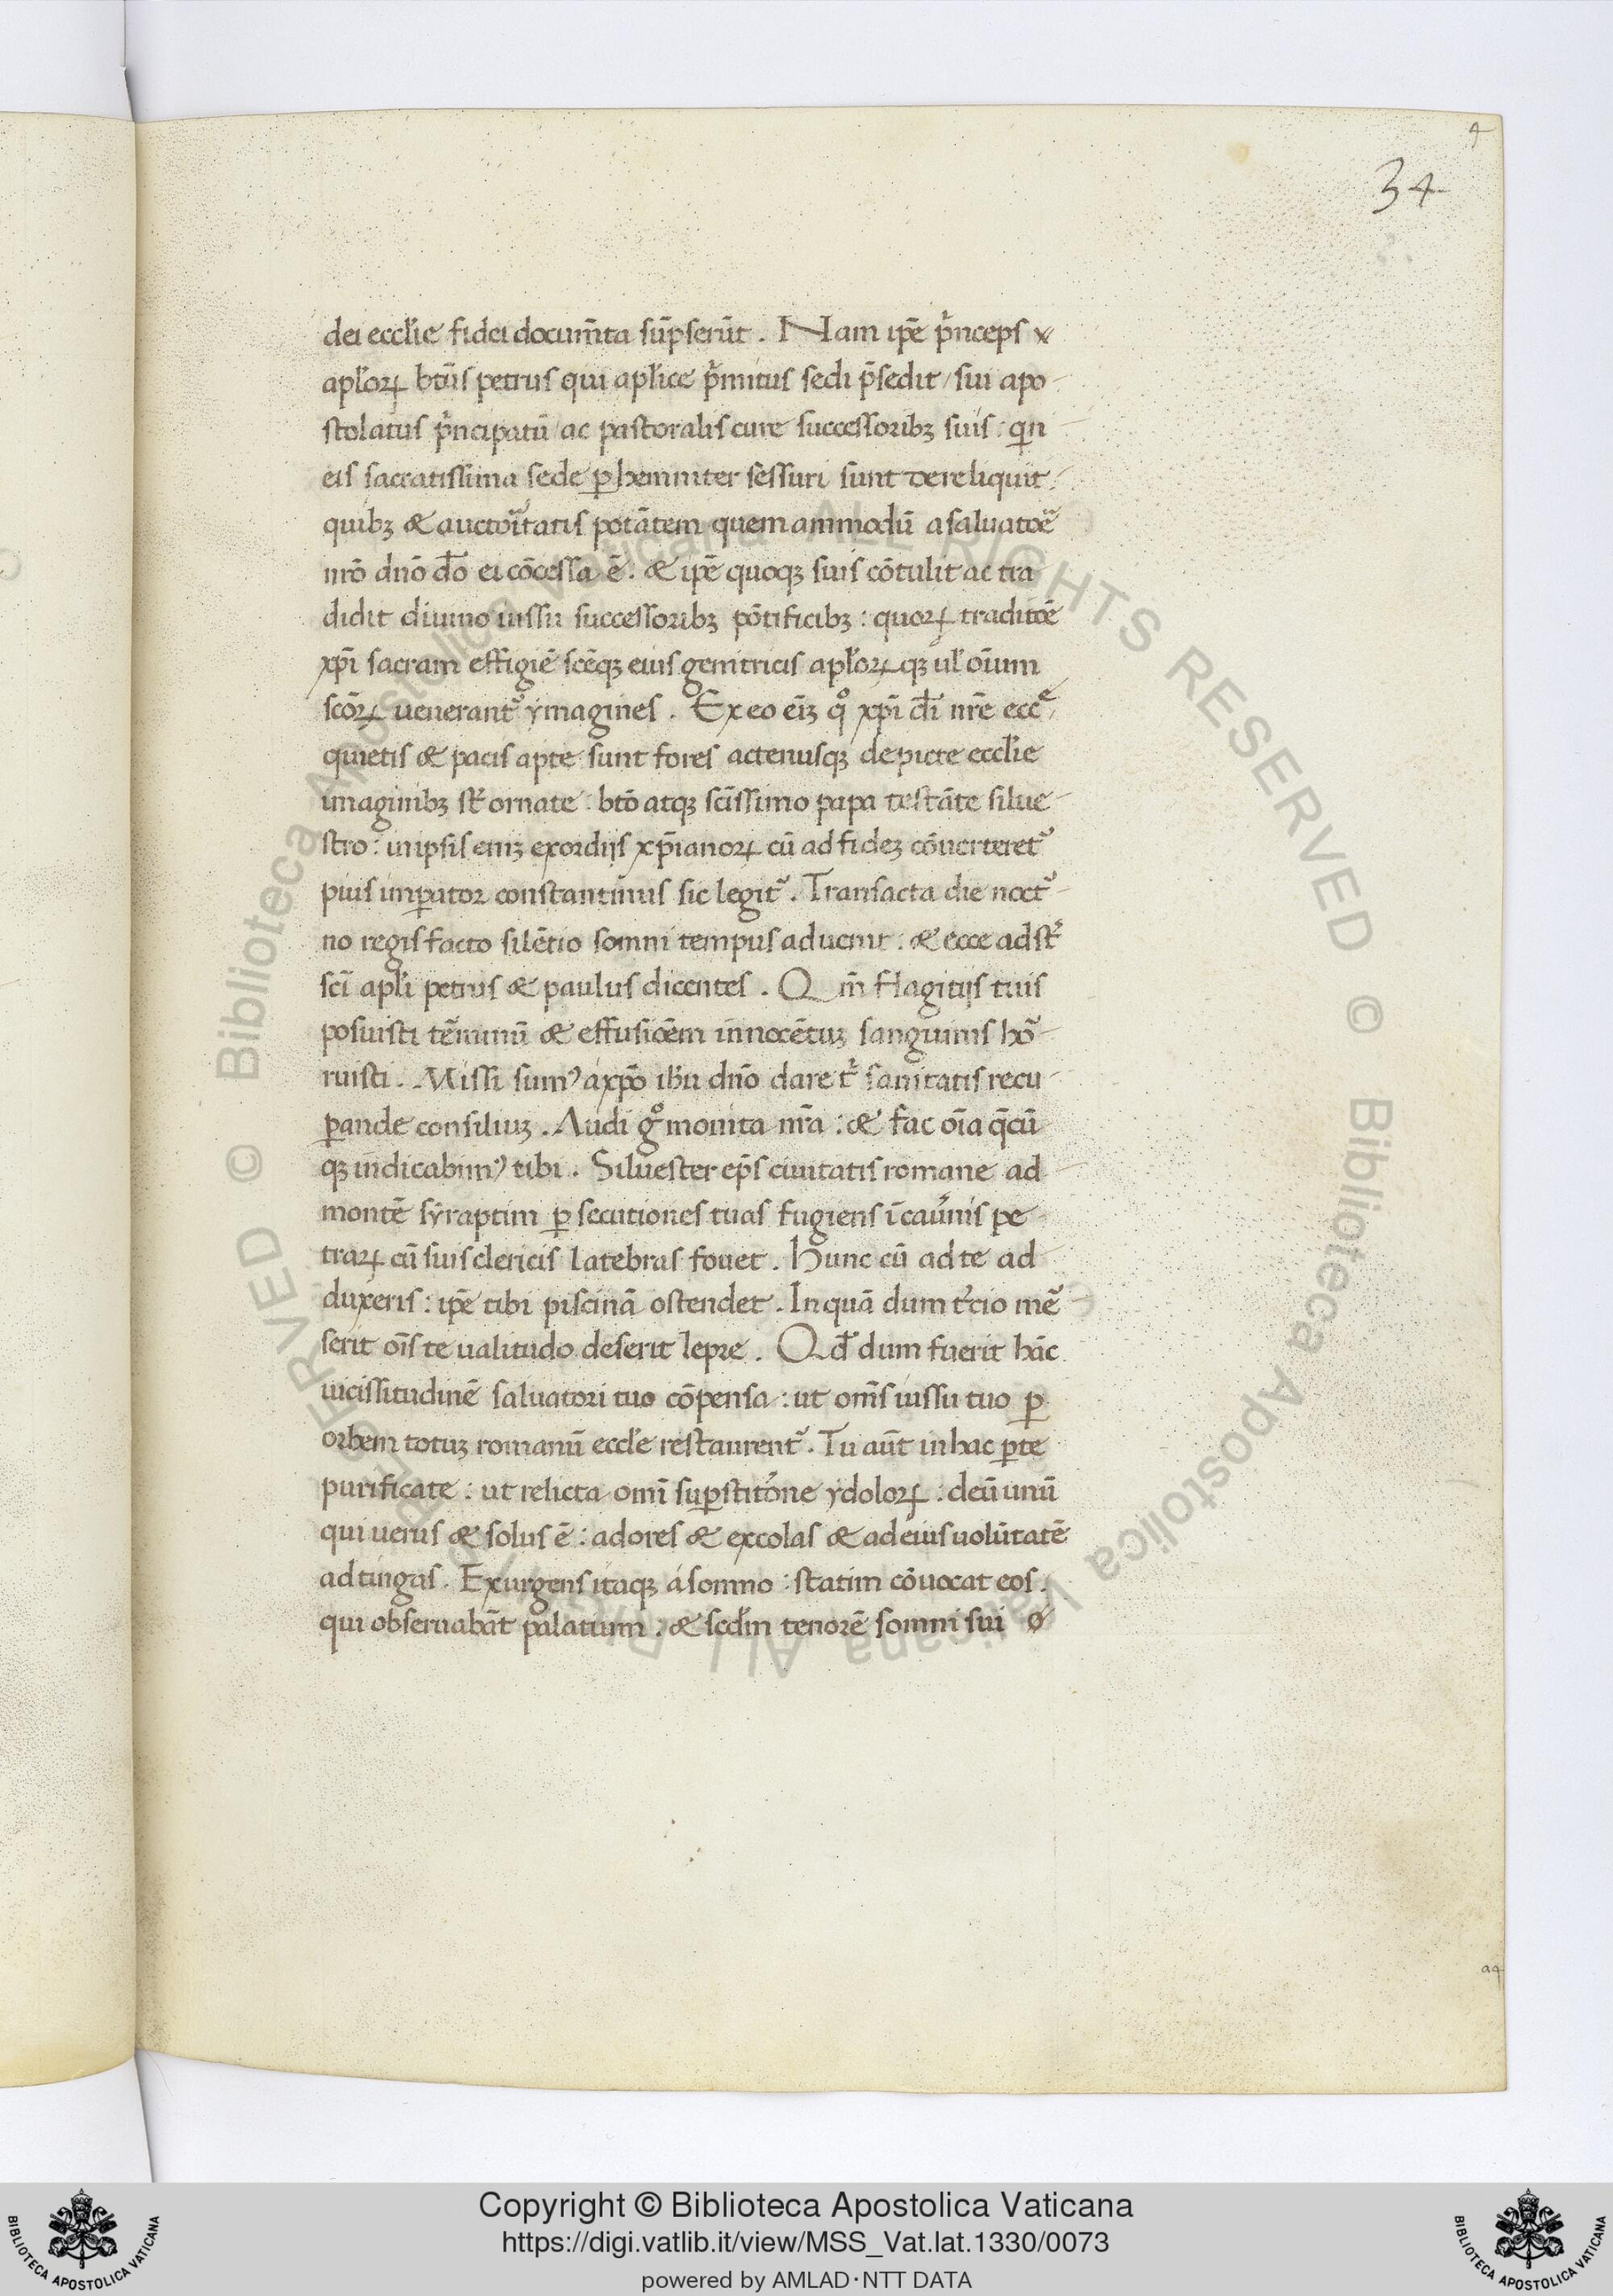 4
34
dei eccl̄ie fidei documn̄ta sūpserūt. Nam ip̄e p̄nceps
apl̄oꝝ bt̄us petrus qui apl̄ice p̄mitus sedi p̄sedit / sui apo
stolatus p̄ncipatū / ac pastoralis cure successoribꝫ suis: q̄ in
eis sacratissima sede ꝑhenniter sessuri sunt dereliquit.
quibꝫ & auctoritatis potātem quemammodū a saluatoē
nr̄o dn̄o dēo ei cōcessa ē. & ip̄e quoqꝫ suis cōtulit ac tra
didit diuino iussu successoribꝫ pōtificibꝫ: quoꝝ traditōe
xp̄i sacram effigiē scēqꝫ eius genitricis apl̄oꝝqꝫ ul̄ oīum
scōꝝ uenerant᷑ ymagines. Ex eo eīꝫ qͦ xp̄i dēi nr̄e ecc̄e
quietis & pacis apte sunt fores actenusqꝫ depicte eccl̄ie
imaginibꝫ st̄ ornate: btō atqꝫ scīssimo papa testāte silue
stro: in ipsis eniꝫ exordijs xp̄ianoꝝ cū ad fideꝫ cōuerteret᷑
pius inꝑator constantinus sic legit᷑. Transacta die noct᷑
no regis facto silētio somni tempus aduenit: & ecce adst᷑
scī apl̄i petrus & paulus dicentes. Qm̄ flagitijs tuis
posuisti tēminū & effusioēm innocētiuꝫ sanguinis hō
ruisti. Missi sumꝰ a xp̄o ihū dn̄o dare t᷑ sanitatis recu
ꝑande consiliuꝫ. Audi gͦ monita nr̄a: & fac oīa q̄cū
qꝫ indicabimꝰ tibi. Siluester ep̄s ciuitatis romane ad
montē syraptim ꝑsecutiones tuas fugiens ī cau᷑nis pe
traꝝ cū suis clericis latebras fouet. Hunc cū ad te ad
duxeris: ip̄e tibi piscinā ostendet. In quā dum t᷑cio mē
serit oīs te ualitudo deserit lepre. Qd̄ dum fuerit hāc
uicissitudinē saluatori tuo cōpensa: ut om̄s iussu tuo ꝑ
orbem totuꝫ romanū eccl̄e restaurent᷑. Tu aūt in hac ꝑte
purificate: ut relicta omī suꝑstitōne ydoloꝝ: deū unū
qui uerus & solus ē: adores & excolas & ad eius uolūtatē
adtingas. Exurgens itaqꝫ a somno: statim cōuocat eos.
qui obseruabāt palatium. & scd̄m tenorē somni sui
a4
Copyright © Biblioteca Apostolica Vaticana
https://digi.vatlib.it/view/MSS_Vat.lat.1330/0073
powered by AMLAD·NTT DATA